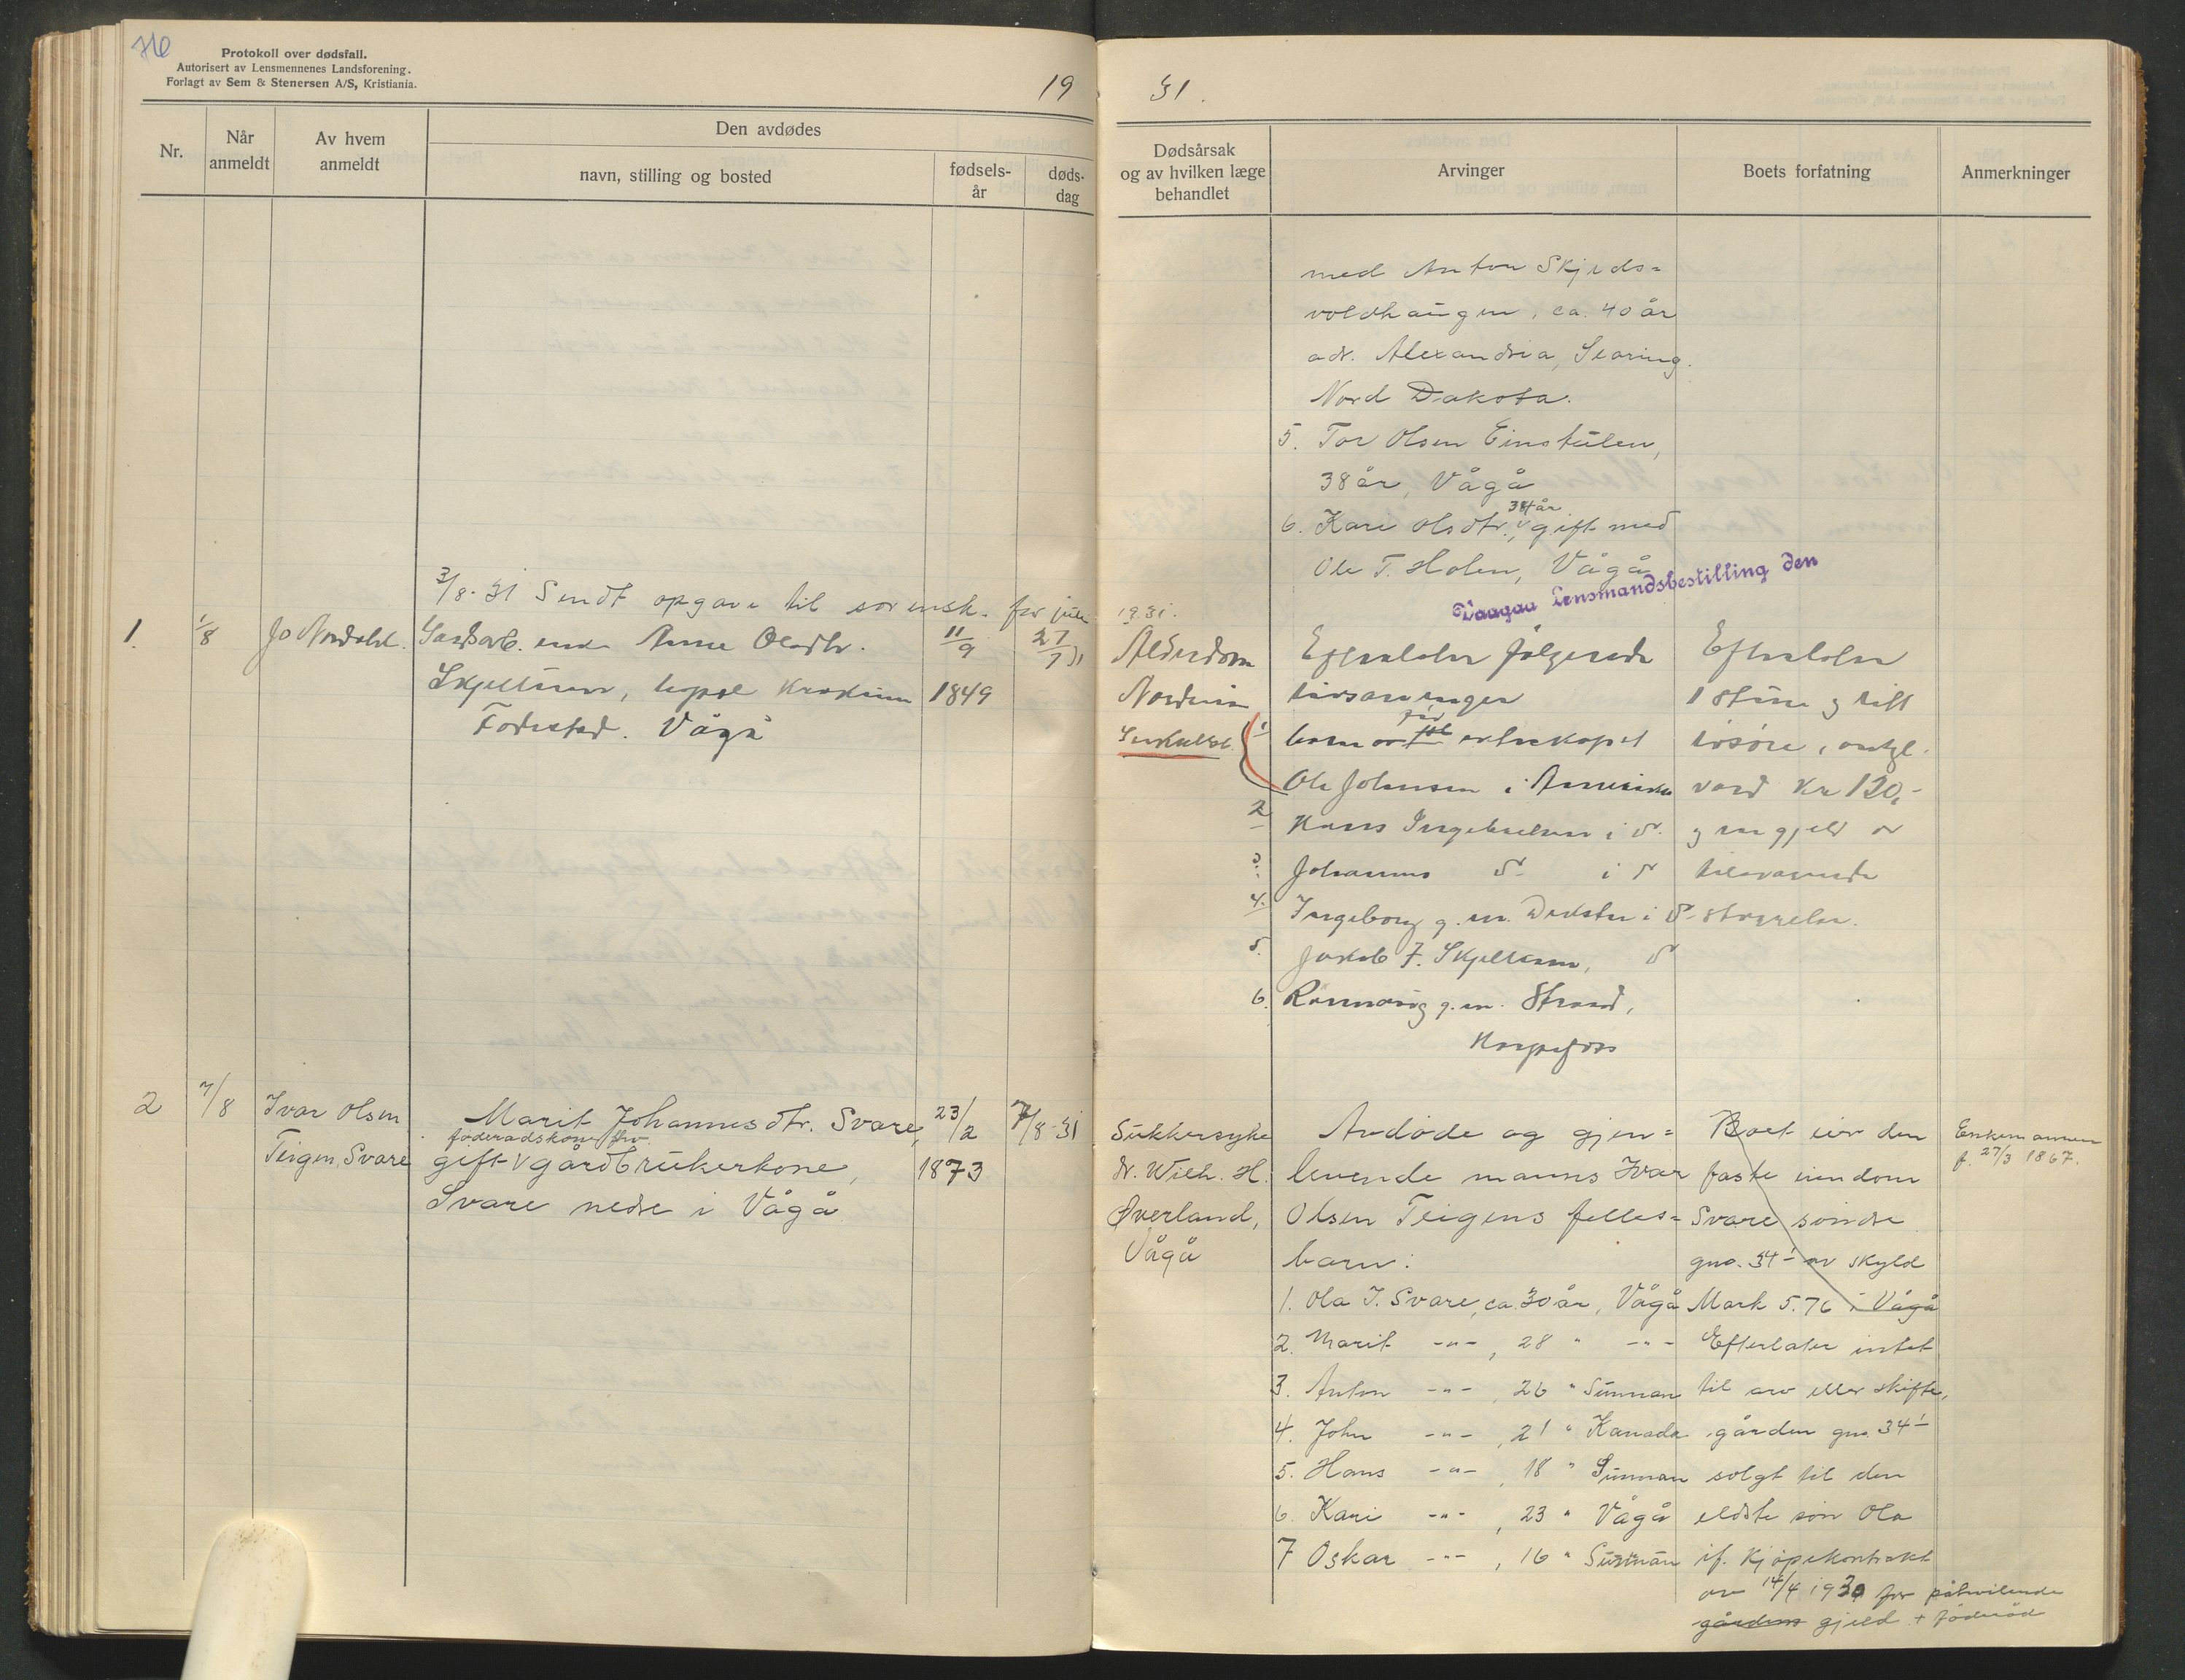 Protokoll over dødsfall.
Autorisert av Lensmennenes Landsforening.
Forlagt av Sem & Stenersen A/S, Kristiania.
19
Nr.
Når anmeldt
Av hvem anmeldt
Den avdødes
navn, stilling og bosted
fødsels-år
døds-dag
3/8-31 Sendt opgave til sorensk. for juli
1.
1/8
Jo Nordahl.
enke Anne Olsdtr.
11/9
27/7 31
1849
Fodested. Vågå
2
7/8
Ivar Olsen
Teigen, Svare
Marit Johannesdtr. Svare,
føderadskone frv.
gift v gårdbrukerkone,
Svare nedre i Vågå
23/2
1873
7/8-31
31.
Dødsårsak
og av hvilken læge
behandlet
Arvinger
Boets forfatning
Anmerkninger
med Anton Skjeds=
voldhaugen, ca. 40 år
adr. Alexandria,
Nord Dakota.
5. Tor Olsen Einstulen,
38 år, Vågå
34 år
6. Kari Olsdtr., v gift med
Ole T. Holen, Vågå
Vaagaa Lensmandsbestilling den
1931.
Alderdom
Efterlater følgende
livsarvinger
1
barn av ekteskapet
Ole Johansen i Amerika
2
Hans Ingebrigtsen i do.
3.
Johannes do. i do
4.
Ingeborg g. m. i do.
5.
Jakob J. do
6.
Rannveig g. m. Strand,
Efterlater
1 stue og litt
løsøre, antgl.
verd Kr 120,-
og en gjeld av
tilsvarende
størrelse.
Sukkersyke
dr. Wilh. H.
Øverland,
Vågå
Avdøde og gjen=
levende manns Ivar
Olsen Teigens felles=
barn:
1. Ola I. Svare, ca. 30 år, Vågå
2. Marit -"-, 28 " -"-
3. Anton -"-, 26 " Sunnan
4. John -"-, 21 " Kanada
5. Hans -"-, 18 " Sunnan
6. Kari -"-, 23 " Vågå
7 Oskar -"-, 16 " Sunnan
Boet eier den
faste eiendom
Svare søndre
gno. 34 1 av skyld
Mark 5.76 i Vågå
Efterlater intet
til arv eller skifte,
gården gno. 34 1
solgt til den
eldste søn Ola
if. kjøpekontrakt
av 14/4 1930 for påhvilende
gårdens gjeld + føderåd
Enkemannen
f. 27/3 1867.